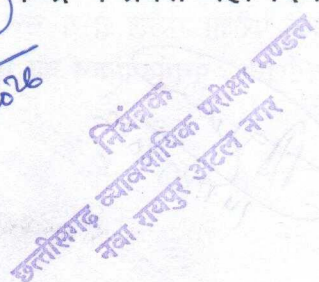 2026
नियंत्रक
छत्तीसगढ़ व्यावसायिक परीक्षा मण्डल
नवा रायपुर अटल नगर